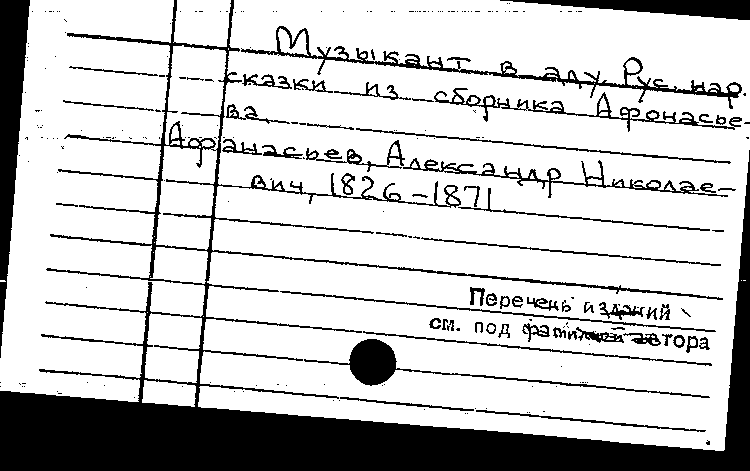 Музыкант в аду. Рус. нар.
сказки из сборника Афонасье-
ва.
Афанасьев, Александр Николае-
вич, 1826-1871
Перечень изданий
см. под фамилией автора